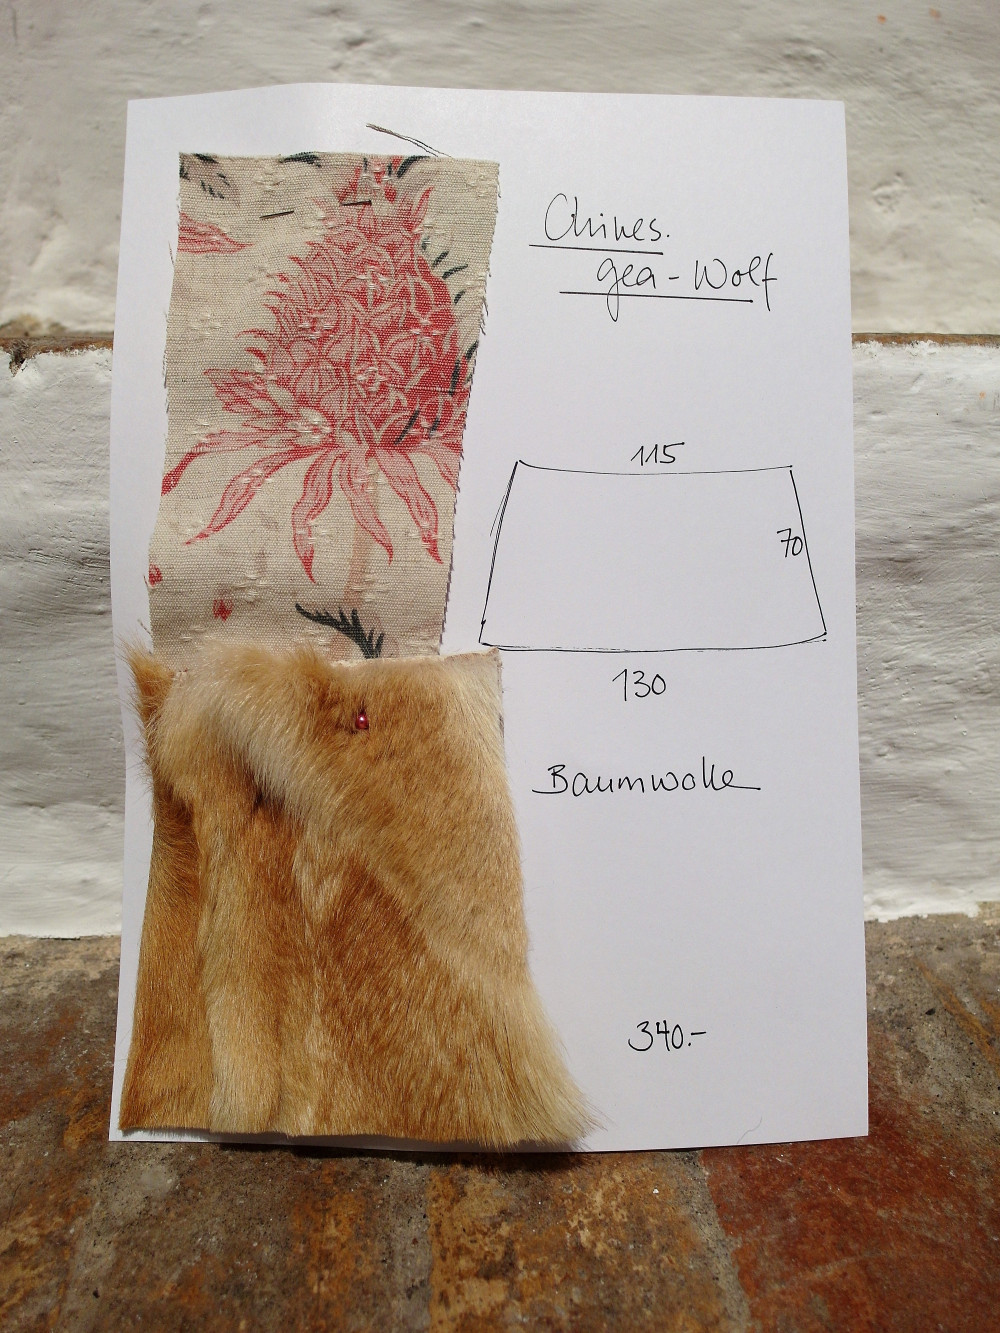 Chines.
gea-Wolf
115
70
130
Baumwolle
340.-